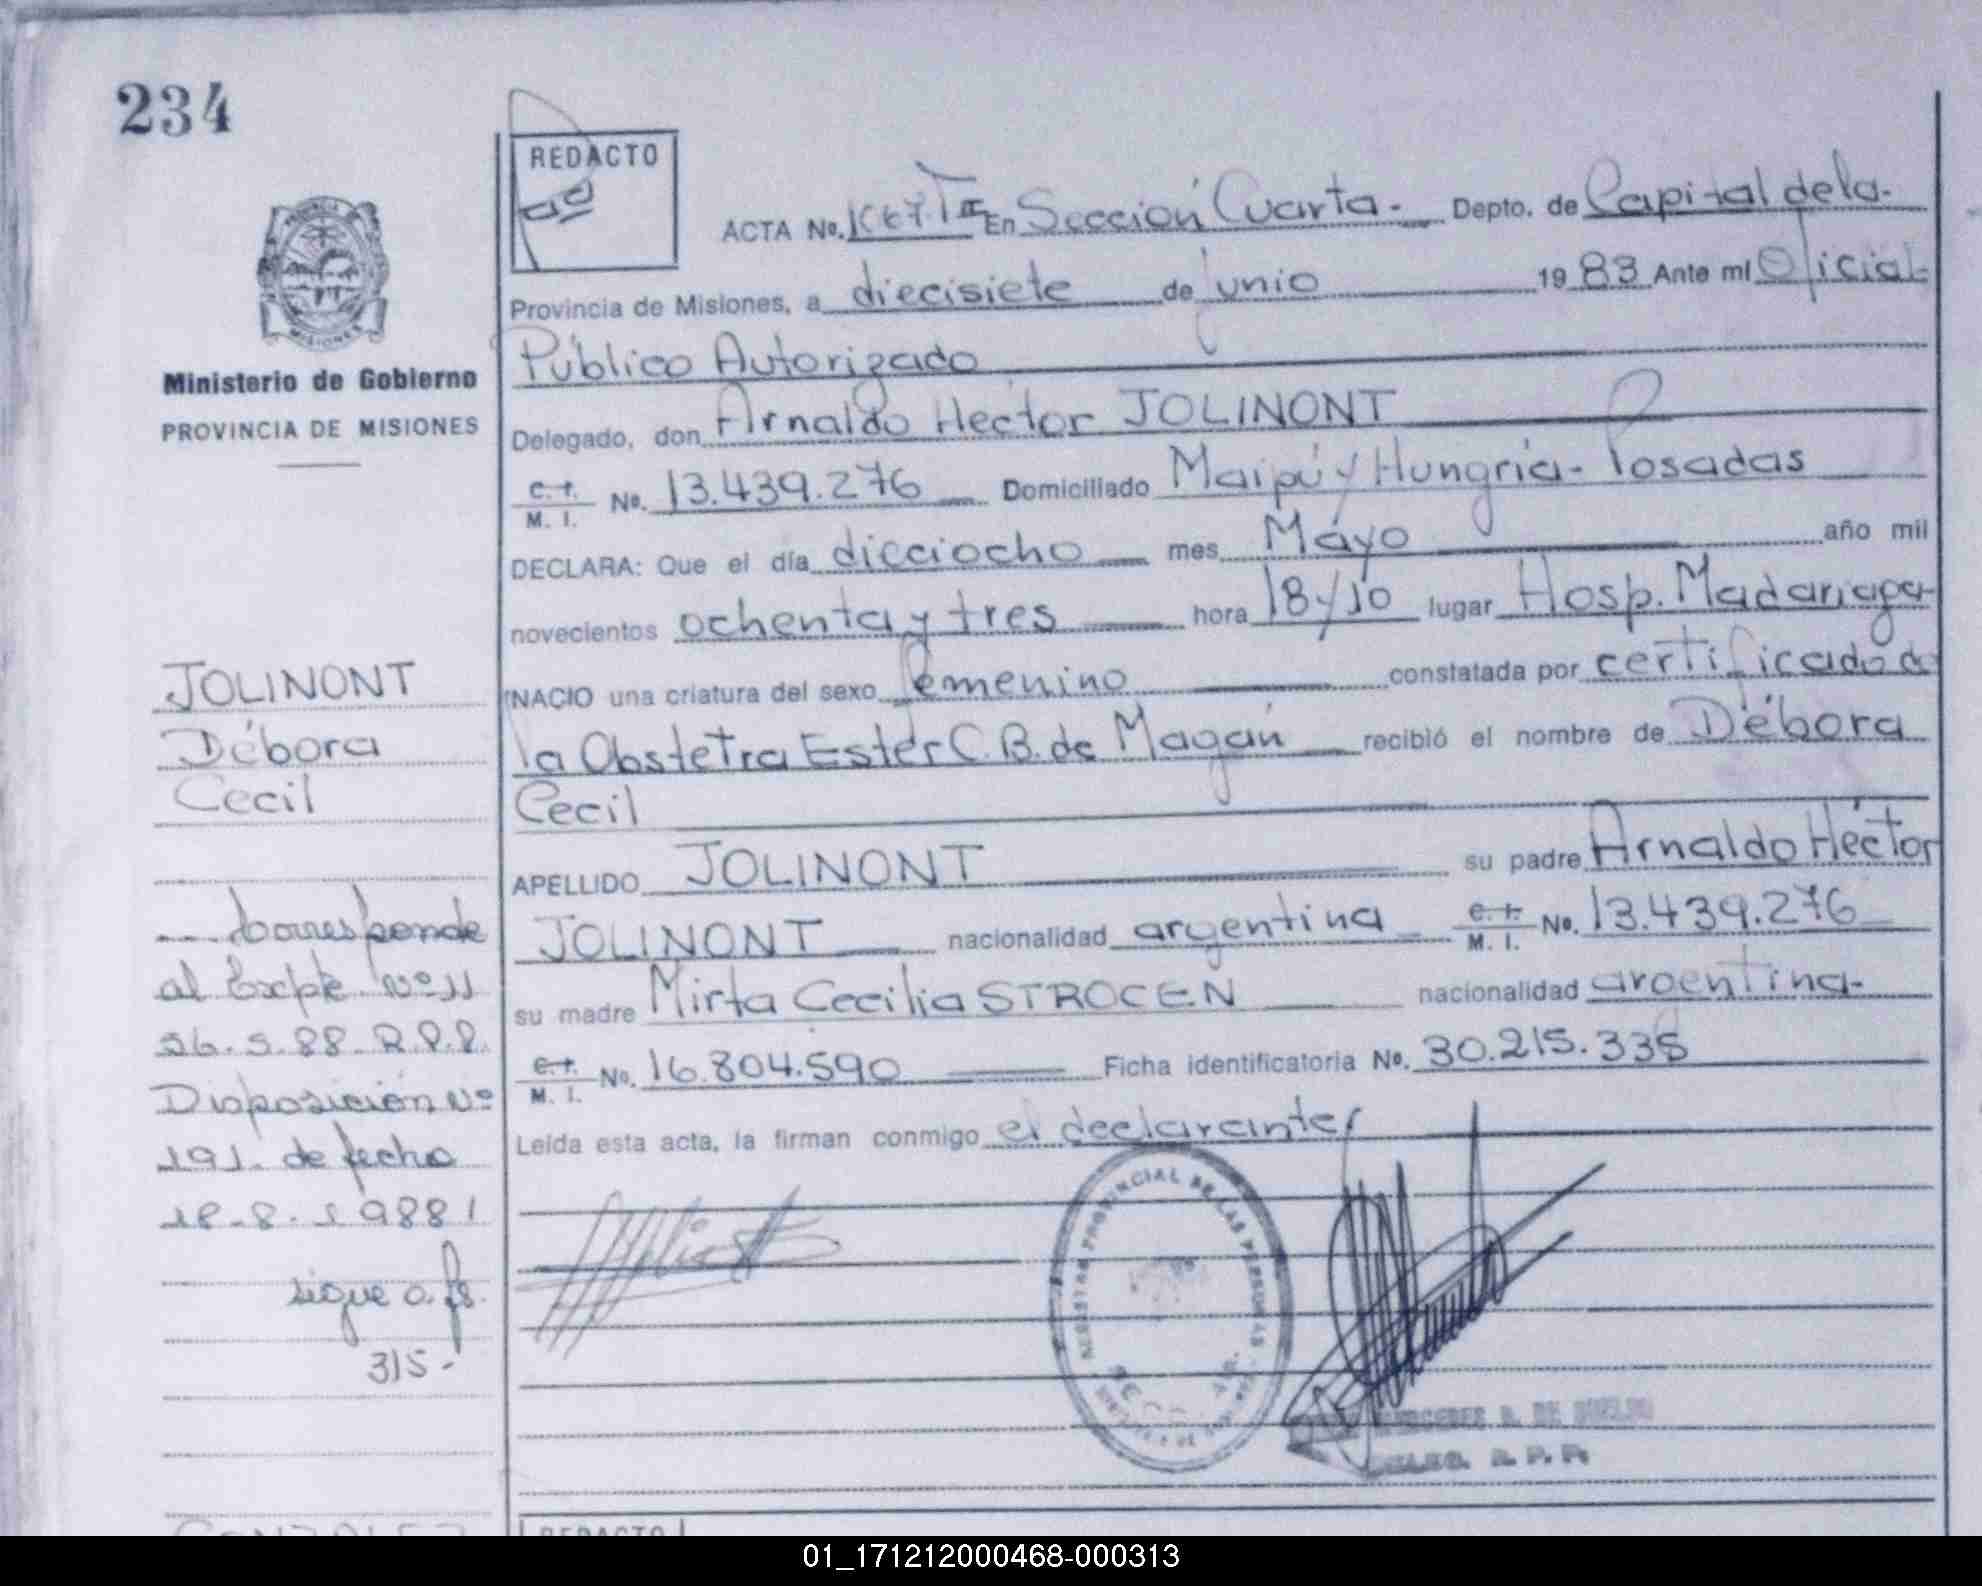 234
REDACTO
ACTA No. 1067. T II En Sección Cuarta.- Depto. de Capital de la-
Provincia de Misiones, a diecisiete de junio 1983 Ante mí Oficial
Público Autorizado
Ministerio de Gobierno
PROVINCIA DE MISIONES
Delegado, don Arnaldo Héctor JOLINONT
C. I. M. I. No. 13.439.276 Domiciliado Maipú y Hungría- Posadas
DECLARA: Que el día dieciocho mes Mayo año mil
novecientos ochenta y tres hora 18 y 10 lugar Hosp. Madariaga-
NACIO una criatura del sexo femenino constatada por certificado de
la Obstetra Ester C. B. de Magán recibió el nombre de Débora
Cecil
APELLIDO JOLINONT su padre Arnaldo Héctor
JOLINONT nacionalidad argentina C. I. M. I. No. 13.439.276
su madre Mirta Cecilia STROCEN nacionalidad argentina-
C. I. M. I. No. 16.804.590 Ficha identificatoria No. 30.215.335
Leída esta acta, la firman conmigo el declarante
JOLINONT
Débora
Cecil
Corresponde
al Expte Nº 11
56-5-88 R.P.P.
Disposición Nº
191. de fecha
18-8-1988
sigue a fs.
315-
REGISTRO PROVINCIAL DE LAS PERSONAS
DELEG. R. P. P.
REDACTO
01_171212000468-000313